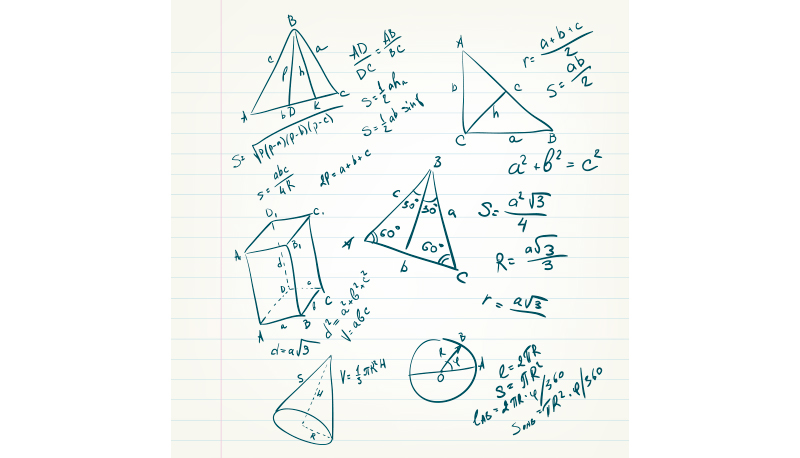 B
c
a
P
h
A
b
D
K
C
AD/DC = AB/BC
S=1/2 ah
S=1/2 ab sin
S=√p(p-a)(p-b)(p-c)
S=abc/4R
2P=a+b+c
A
b
c
h
C
a
B
r=a+b+c/2
S=ab/2
a²+b²=c²
B
c
30°
30°
a
A
60°
60°
b
C
S=a²√3/4
R=a√3/3
r=a√3
D₁
C₁
A₁
B₁
d
D
C
A
a
B
b
d²=a²+b²+c²
V=abc
d=a√3
S
H
R
V=1/3 πR²H
B
R
φ
A
O
l=2πR
S=πR²
lAB=2πR·φ/360
SOAB=πR²·φ/360